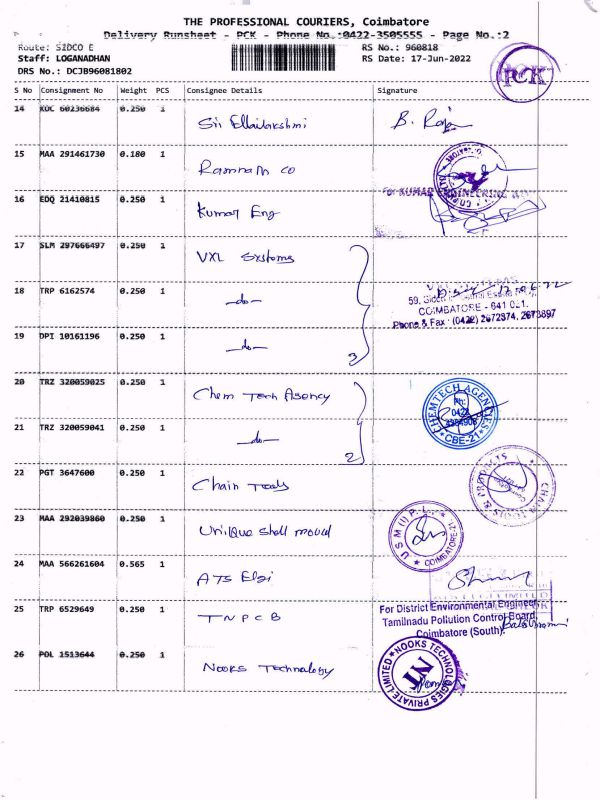 THE PROFESSIONAL COURIERS, Coimbatore
Delivery Runsheet - PCK - Phone No.:0422-3505555 - Page No.:2
Route: SIDCO E RS No.: 960818
Staff: LOGANADHAN RS Date: 17-Jun-2022
DRS No.: DCJB96081802
PCK
S No Consignment No Weight PCS Consignee Details Signature
14 KOC 60236684 0.250 1
Sri Ellailakshmi B. Raja
15 MAA 291461730 0.180 1
Ramnath co
16 EDQ 21410815 0.250 1 For KUMAR ENGINEERING
Kumar Eng
17 SLM 297666497 0.250 1
VXL Systems
18 TRP 6162574 0.250 1
-do-
COIMBATORE - 641 021.
Phone & Fax : (0422) 2672374, 2673897
19 DPI 10161196 0.250 1
-do- 3
20 TRZ 320059025 0.250 1
Chem Tech Agency
CHEMTECH AGENCIES
Ph:
0422
CBE-21
21 TRZ 320059041 0.250 1
-do- 2
22 PGT 3647600 0.250 1
Chain Tools
CHAIN TOOLS & PRODUCTS
23 MAA 292039860 0.250 1
Unique Shell mould
U S M (I) P. L.
COIMBATORE-21
24 MAA 566261604 0.565 1
ATS Elgi
25 TRP 6529649 0.250 1
TNPCB
For District Environmental Engineer
Tamilnadu Pollution Control Board
Coimbatore (South)
26 POL 1513644 0.250 1
Nooks Technology
NOOKS TECHNOLOGIES PRIVATE LIMITED
NT